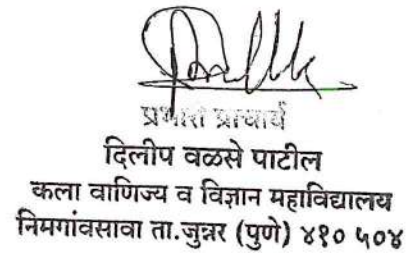 प्रभारी प्राचार्य
दिलीप वळसे पाटील
कला वाणिज्य व विज्ञान महाविद्यालय
निमगांवसावा ता.जुन्नर (पुणे) ४१० ५०४